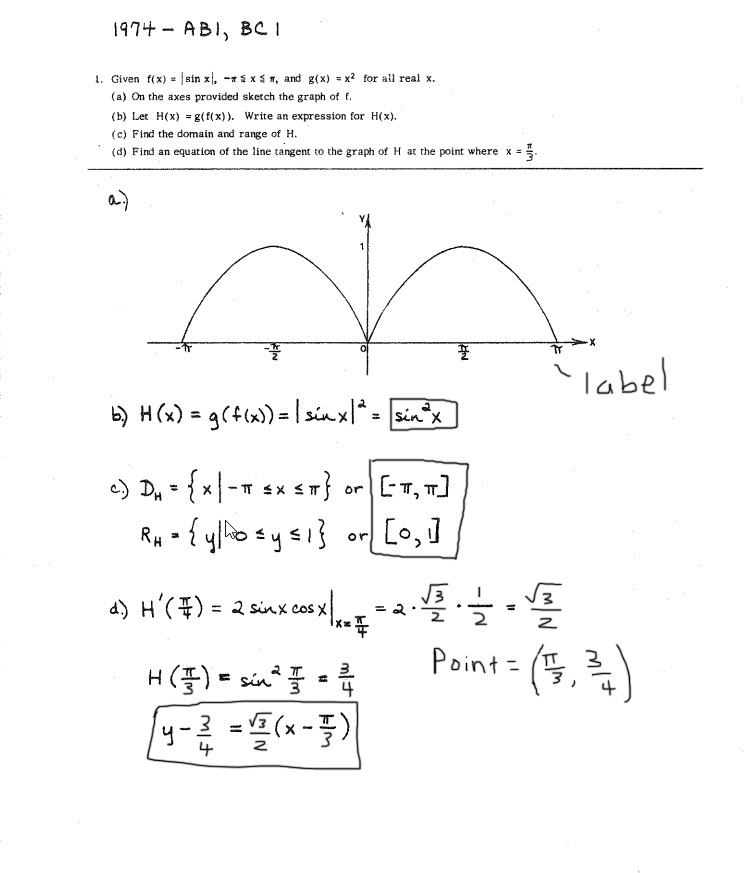 1974 - AB1, BC 1
1. Given f(x) = |sin x|, -π ≦ x ≦ π, and g(x) = x² for all real x.
(a) On the axes provided sketch the graph of f.
(b) Let H(x) = g(f(x)). Write an expression for H(x).
(c) Find the domain and range of H.
(d) Find an equation of the line tangent to the graph of H at the point where x = π/3.
a.)
Y
1
-π -π/2 0 π/2 π X
label
b.) H(x) = g(f(x)) = |sin x|² = sin²x
c.) D_H = {x | -π ≤ x ≤ π} or [-π, π]
R_H = {y | 0 ≤ y ≤ 1} or [0, 1]
d.) H'(π/4) = 2 sin x cos x |x=π/4 = 2 · √3/2 · 1/2 = √3/2
H(π/3) = sin² π/3 = 3/4 Point = (π/3, 3/4)
y - 3/4 = √3/2 (x - π/3)